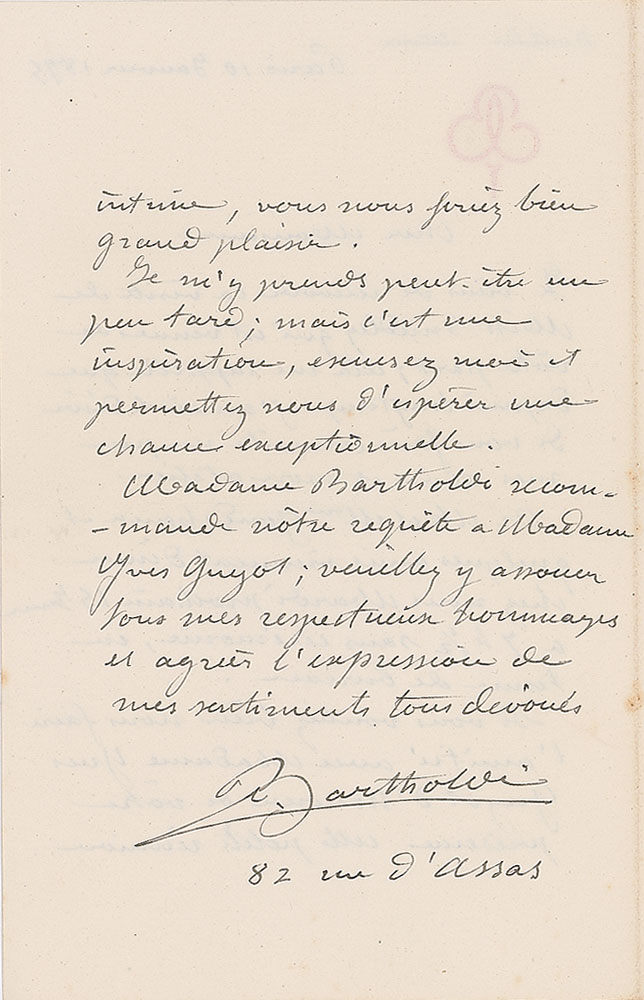 intime, vous nous feriez bien
grand plaisir.
Je m'y prends peut-être un
peu tard; mais c'est une
inspiration, excusez moi et
permettez nous d'espérer une
chance exceptionnelle.
Madame Bartholdi recom-
-mande nôtre requête a Madame
Yves Guyot; veuillez y associer
tous mes respectueux hommages
et agréer l'expression de
mes sentiments tous dévoués
A. Bartholdi
82 rue d'Assas